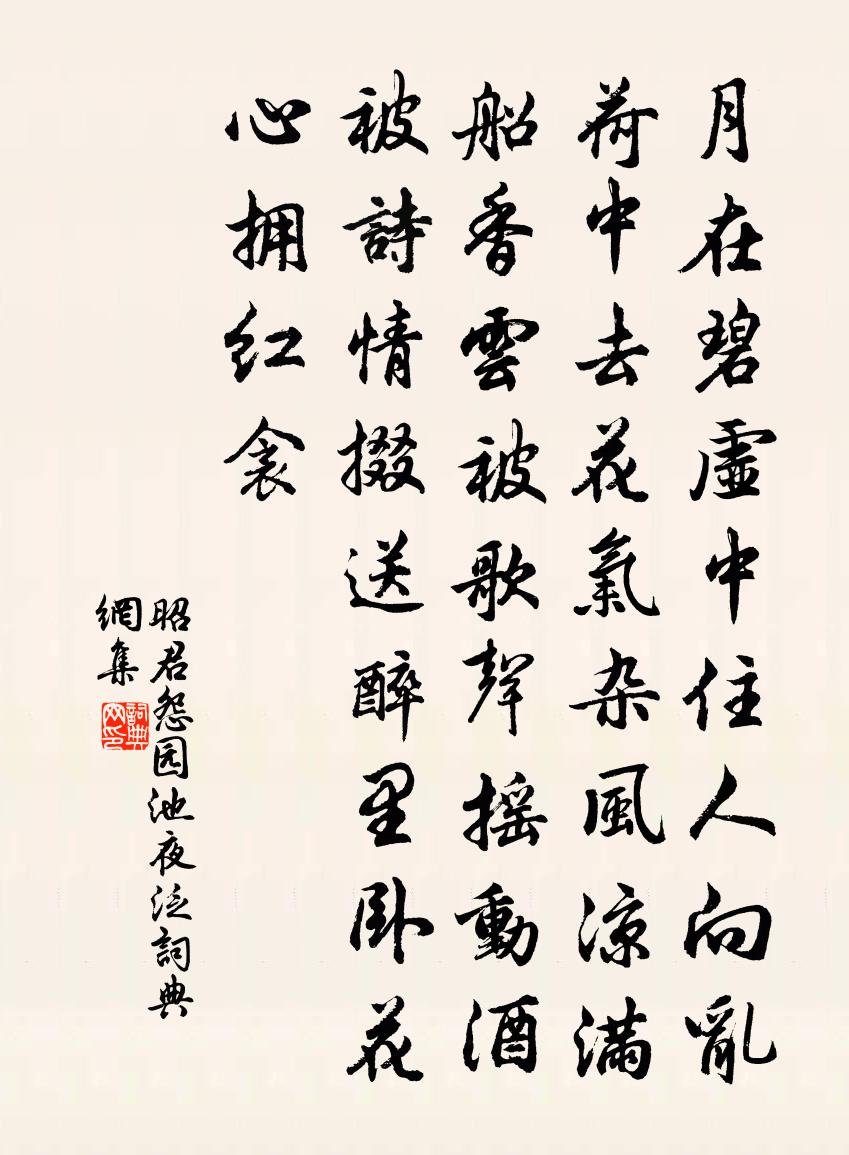 月在碧虛中住人向亂
荷中去花氣杂風凉滿
船香雲被歌聲摇動酒
被詩情掇送醉里卧花
心拥红衾
昭君怨园池夜泛詞典
網集
詞典
网印